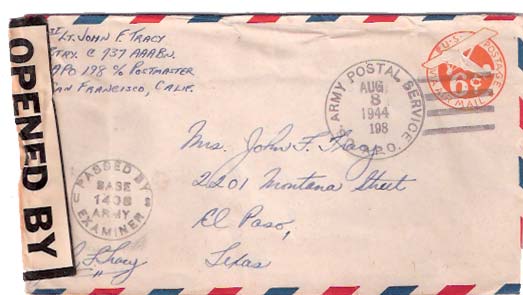 OPENED BY
LT. JOHN F. TRACY
BTRY. C 737 AAABN.
APO 198 c/o POSTMASTER
SAN FRANCISCO, CALIF.
U.S. POSTAGE
6¢
VIA AIR MAIL
ARMY POSTAL SERVICE
AUG
8
1944
198
A.P.O.
Mrs. John F. Tracy
2201 Montana Street
El Paso,
Texas
PASSED BY
BASE
1408
ARMY
EXAMINER
U S
Tracy